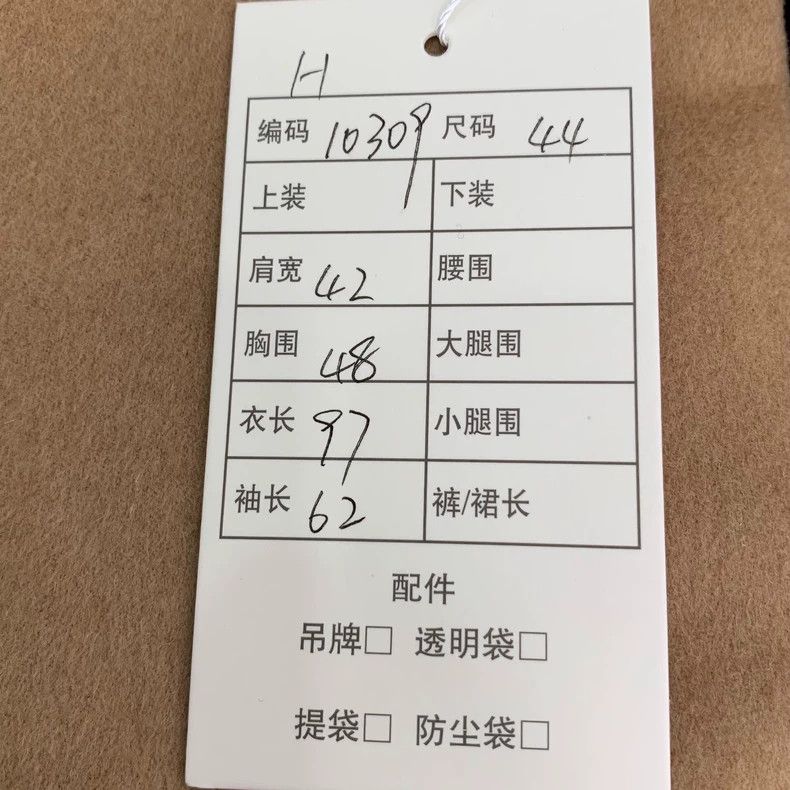 H
编码 10309 尺码 44
上装 下装
肩宽 42 腰围
胸围 48 大腿围
衣长 97 小腿围
袖长 62 裤/裙长
配件
吊牌□ 透明袋□
提袋□ 防尘袋□